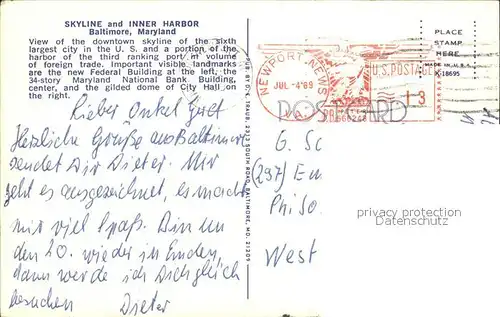 SKYLINE and INNER HARBOR
Baltimore, Maryland
View of the downtown skyline of the sixth
largest city in the U. S. and a portion of the
harbor of the third ranking port in volume
of foreign trade. Important visible landmarks
are the new Federal Building at the left, the
34-story Maryland National Bank Building,
center, and the gilded dome of City Hall on
the right.
Lieber Onkel
Herzliche Grüße aus Baltimore
sendet Dir Dieter. Mir
geht es ausgezeichnet, es macht
mir viel Spaß. Bin um
den 20. wieder in Emden,
dann werde ich Dich gleich
besuchen Dieter
PUB. BY D. E. TRAUB, 2323 SOUTH ROAD, BALTIMORE, MD. 21209
NEWPORT NEWS
JUL -4'69
VA.
U.S. POSTAGE
13
POSTCARD
PLACE
STAMP
HERE
MADE IN U.S.A.
X-18695
G. Sc
(297) Em
Philso
West
privacy protection
Datenschutz